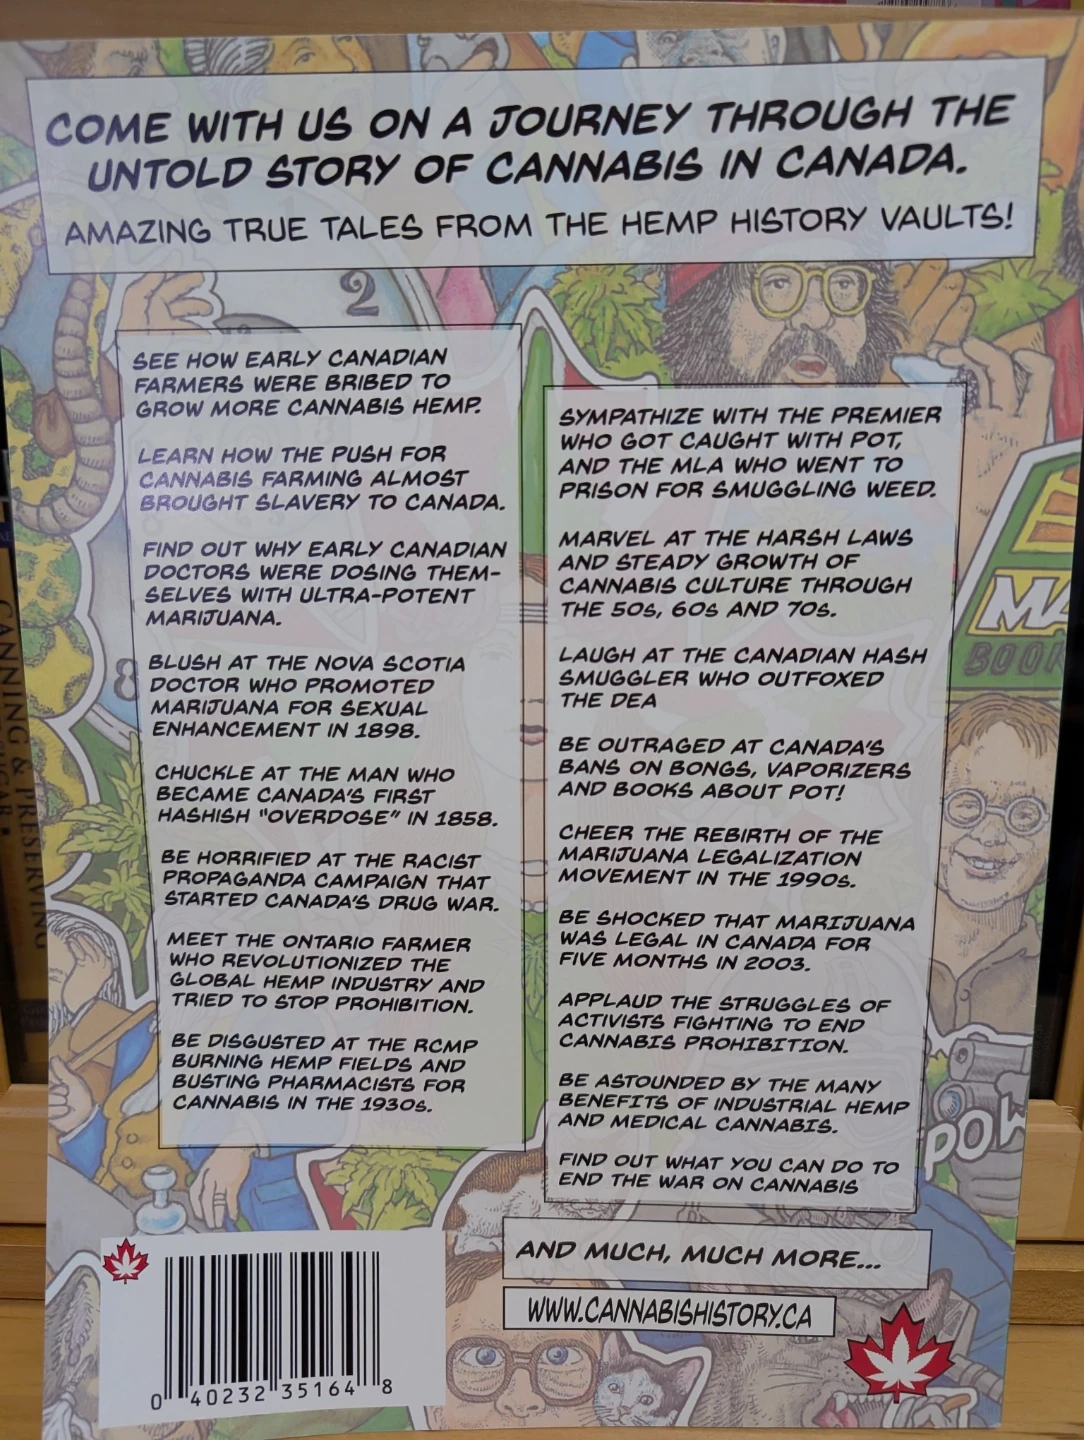 COME WITH US ON A JOURNEY THROUGH THE
UNTOLD STORY OF CANNABIS IN CANADA.
AMAZING TRUE TALES FROM THE HEMP HISTORY VAULTS!
2
8
SEE HOW EARLY CANADIAN
FARMERS WERE BRIBED TO
GROW MORE CANNABIS HEMP.
LEARN HOW THE PUSH FOR
CANNABIS FARMING ALMOST
BROUGHT SLAVERY TO CANADA.
FIND OUT WHY EARLY CANADIAN
DOCTORS WERE DOSING THEM-
SELVES WITH ULTRA-POTENT
MARIJUANA.
BLUSH AT THE NOVA SCOTIA
DOCTOR WHO PROMOTED
MARIJUANA FOR SEXUAL
ENHANCEMENT IN 1898.
CHUCKLE AT THE MAN WHO
BECAME CANADA'S FIRST
HASHISH "OVERDOSE" IN 1858.
BE HORRIFIED AT THE RACIST
PROPAGANDA CAMPAIGN THAT
STARTED CANADA'S DRUG WAR.
MEET THE ONTARIO FARMER
WHO REVOLUTIONIZED THE
GLOBAL HEMP INDUSTRY AND
TRIED TO STOP PROHIBITION.
BE DISGUSTED AT THE RCMP
BURNING HEMP FIELDS AND
BUSTING PHARMACISTS FOR
CANNABIS IN THE 1930s.
SYMPATHIZE WITH THE PREMIER
WHO GOT CAUGHT WITH POT,
AND THE MLA WHO WENT TO
PRISON FOR SMUGGLING WEED.
MARVEL AT THE HARSH LAWS
AND STEADY GROWTH OF
CANNABIS CULTURE THROUGH
THE 50s, 60s AND 70s.
LAUGH AT THE CANADIAN HASH
SMUGGLER WHO OUTFOXED
THE DEA
BE OUTRAGED AT CANADA'S
BANS ON BONGS, VAPORIZERS
AND BOOKS ABOUT POT!
CHEER THE REBIRTH OF THE
MARIJUANA LEGALIZATION
MOVEMENT IN THE 1990s.
BE SHOCKED THAT MARIJUANA
WAS LEGAL IN CANADA FOR
FIVE MONTHS IN 2003.
APPLAUD THE STRUGGLES OF
ACTIVISTS FIGHTING TO END
CANNABIS PROHIBITION.
BE ASTOUNDED BY THE MANY
BENEFITS OF INDUSTRIAL HEMP
AND MEDICAL CANNABIS.
FIND OUT WHAT YOU CAN DO TO
END THE WAR ON CANNABIS
AND MUCH, MUCH MORE...
WWW.CANNABISHISTORY.CA
0 40232 35164 8
CANNING & PRESERVING